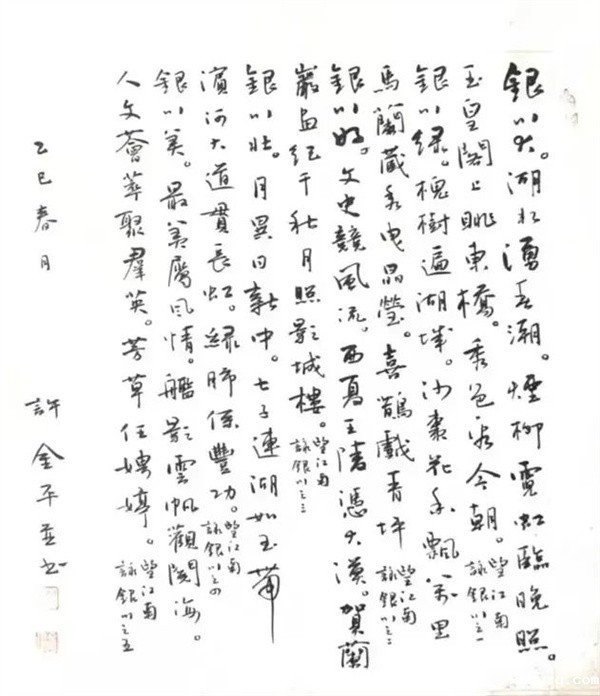 銀川大。湖水湧春潮。煙柳霓虹臨晚照。
玉皇閣上眺東橋。秀色今朝。望江南
詠銀川之一
銀川綠。槐樹遍湖城。沙棗花香飄萬里
馬蘭藏秀曳晶瑩。喜鵲戲青坪 望江南
詠銀川之二
銀川好。文史競風流。西夏王陵憑大漠。賀蘭
巖畫紀千秋月照影城樓。望江南
詠銀川之三
銀川壯。月異日新中。七子連湖如玉帶
濱河大道貫長虹。綠肺係豐功。望江南
詠銀川之四
銀川美。最美屬風情。艦影雲帆觀閱海。
人文薈萃聚羣英。芳草任娉婷。望江南
詠銀川之五
乙巳春月
許金平並書